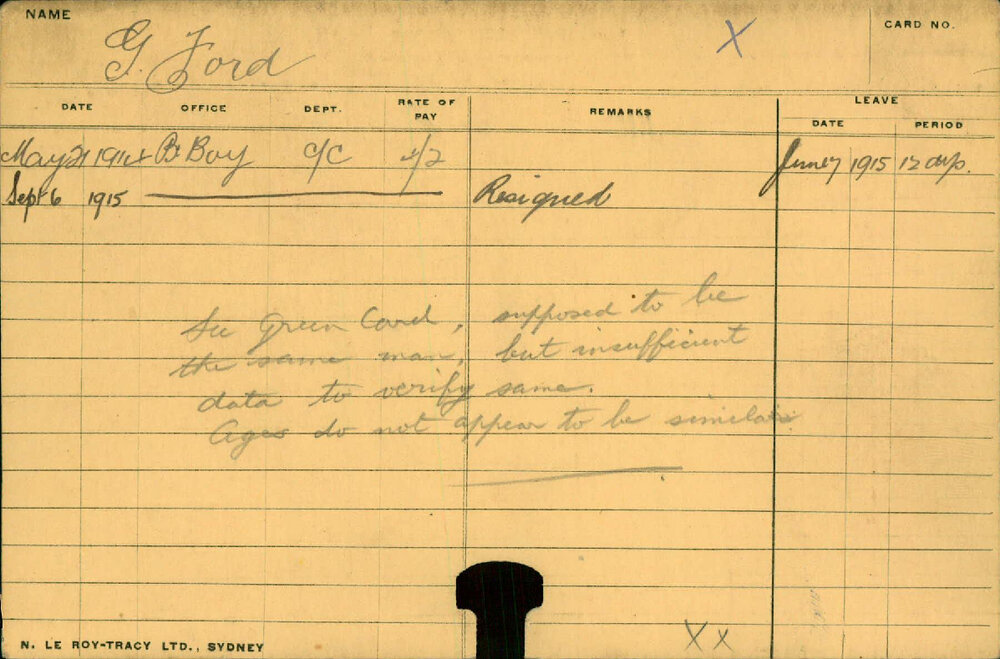 NAME
G. Ford
X
CARD NO.
DATE OFFICE DEPT. RATE OF PAY REMARKS LEAVE
DATE PERIOD
May 21 1914 Br Boy C/C 4/2 June 7 1915 12 dys.
Sept 6 1915 Resigned
See Green Card, supposed to be
the same man, but insufficient
data to verify same.
Ages do not appear to be similar.
X X
N. LE ROY-TRACY LTD., SYDNEY